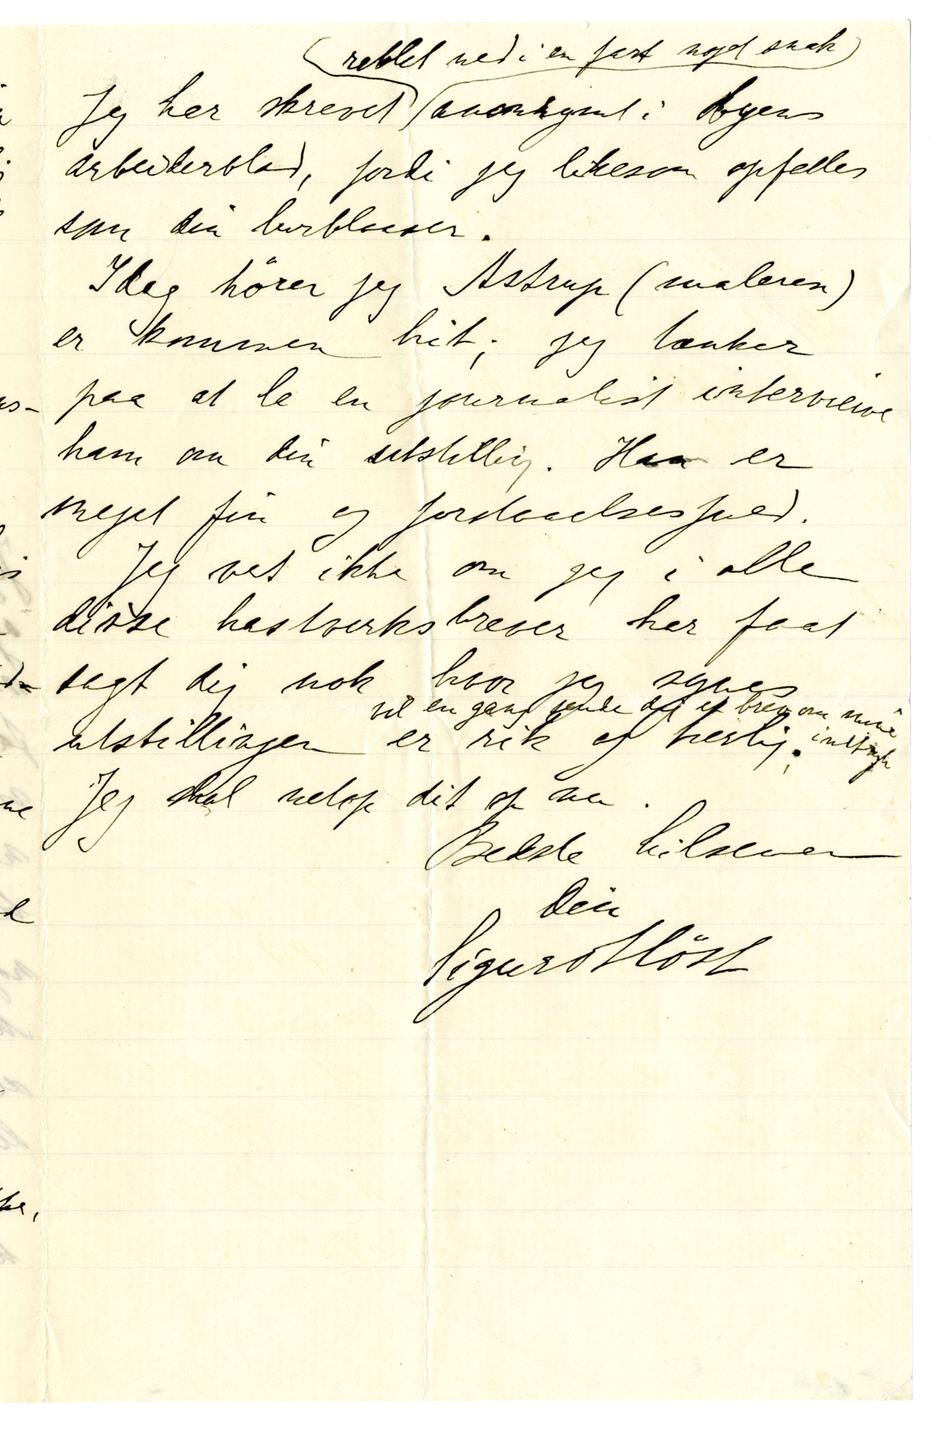 (rablet ned i en fart noget snak)
Jeg har skrevet anonymt i byens
arbeiderblad, fordi jeg likesom opfattes
som din lurblaaser.
Idag hörer jeg Astrup (maleren)
er kommen hit; jeg tænker
paa at la en journalist interviewe
ham om din utstilling. Han er
meget fin og forstaaelsesfuld.
Jeg vet ikke om jeg i alle
disse hastverksbrever har faat
sagt dig nok hvor jeg synes
vil en gang sende dig et brev om mine
indtryk
utstillingen er rik og herlig.
Jeg skal netop dit op nu.
Bedste hilsener
Din
Sigurd Höst